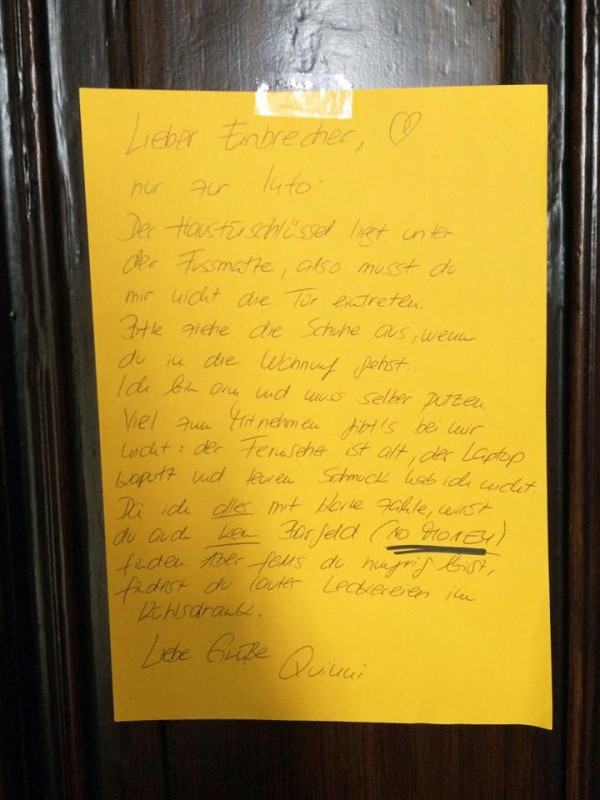 Lieber Einbrecher,
nur zur Info:
Der Haustürschlüssel liegt unter
der Fussmatte, also musst du
mir nicht die Tür eintreten.
Bitte ziehe die Schuhe aus, wenn
du in die Wohnung gehst.
Ich bin arm und muss selber putzen.
Viel zum Mitnehmen gibt's bei mir
nicht: der Fernseher ist alt, der Laptop
kaputt und teuren Schmuck hab ich nicht.
Da ich alles mit Karte zahle, wirst
du auch kein Bargeld (NO MONEY)
finden. Aber falls du hungrig bist,
findest du lauter Leckereien im
Kühlschrank.
Liebe Grüße Quinni